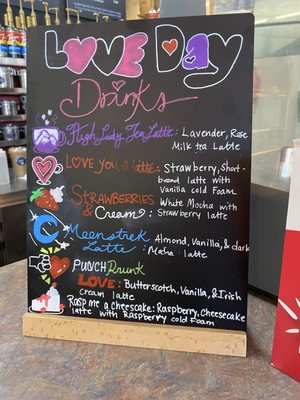 LOVE DAY
Drinks
High Lady Tea Latte: Lavender, Rose
Milk tea Latte
Love you a latte: Strawberry, Short-
bread latte with
Vanilla cold Foam
Strawberries White Mocha with
& Creams: Strawberry latte
Moonstrek Almond, Vanilla, & dark
Latte: Matcha latte
PUNCH Drunk
LOVE: Butterscotch, Vanilla, & Irish
cream latte
Rasp me a Cheescake: Raspberry, Cheesecake
latte with Raspberry cold Foam